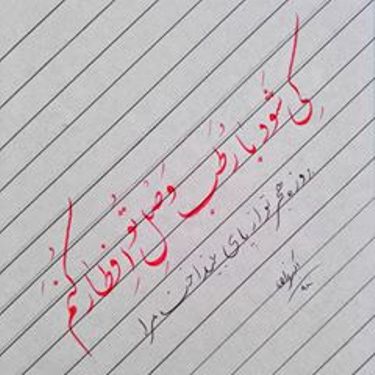 کی شود با رطب وصل تو افطار کنم
روزه هجر تو از پای بینداخت مرا